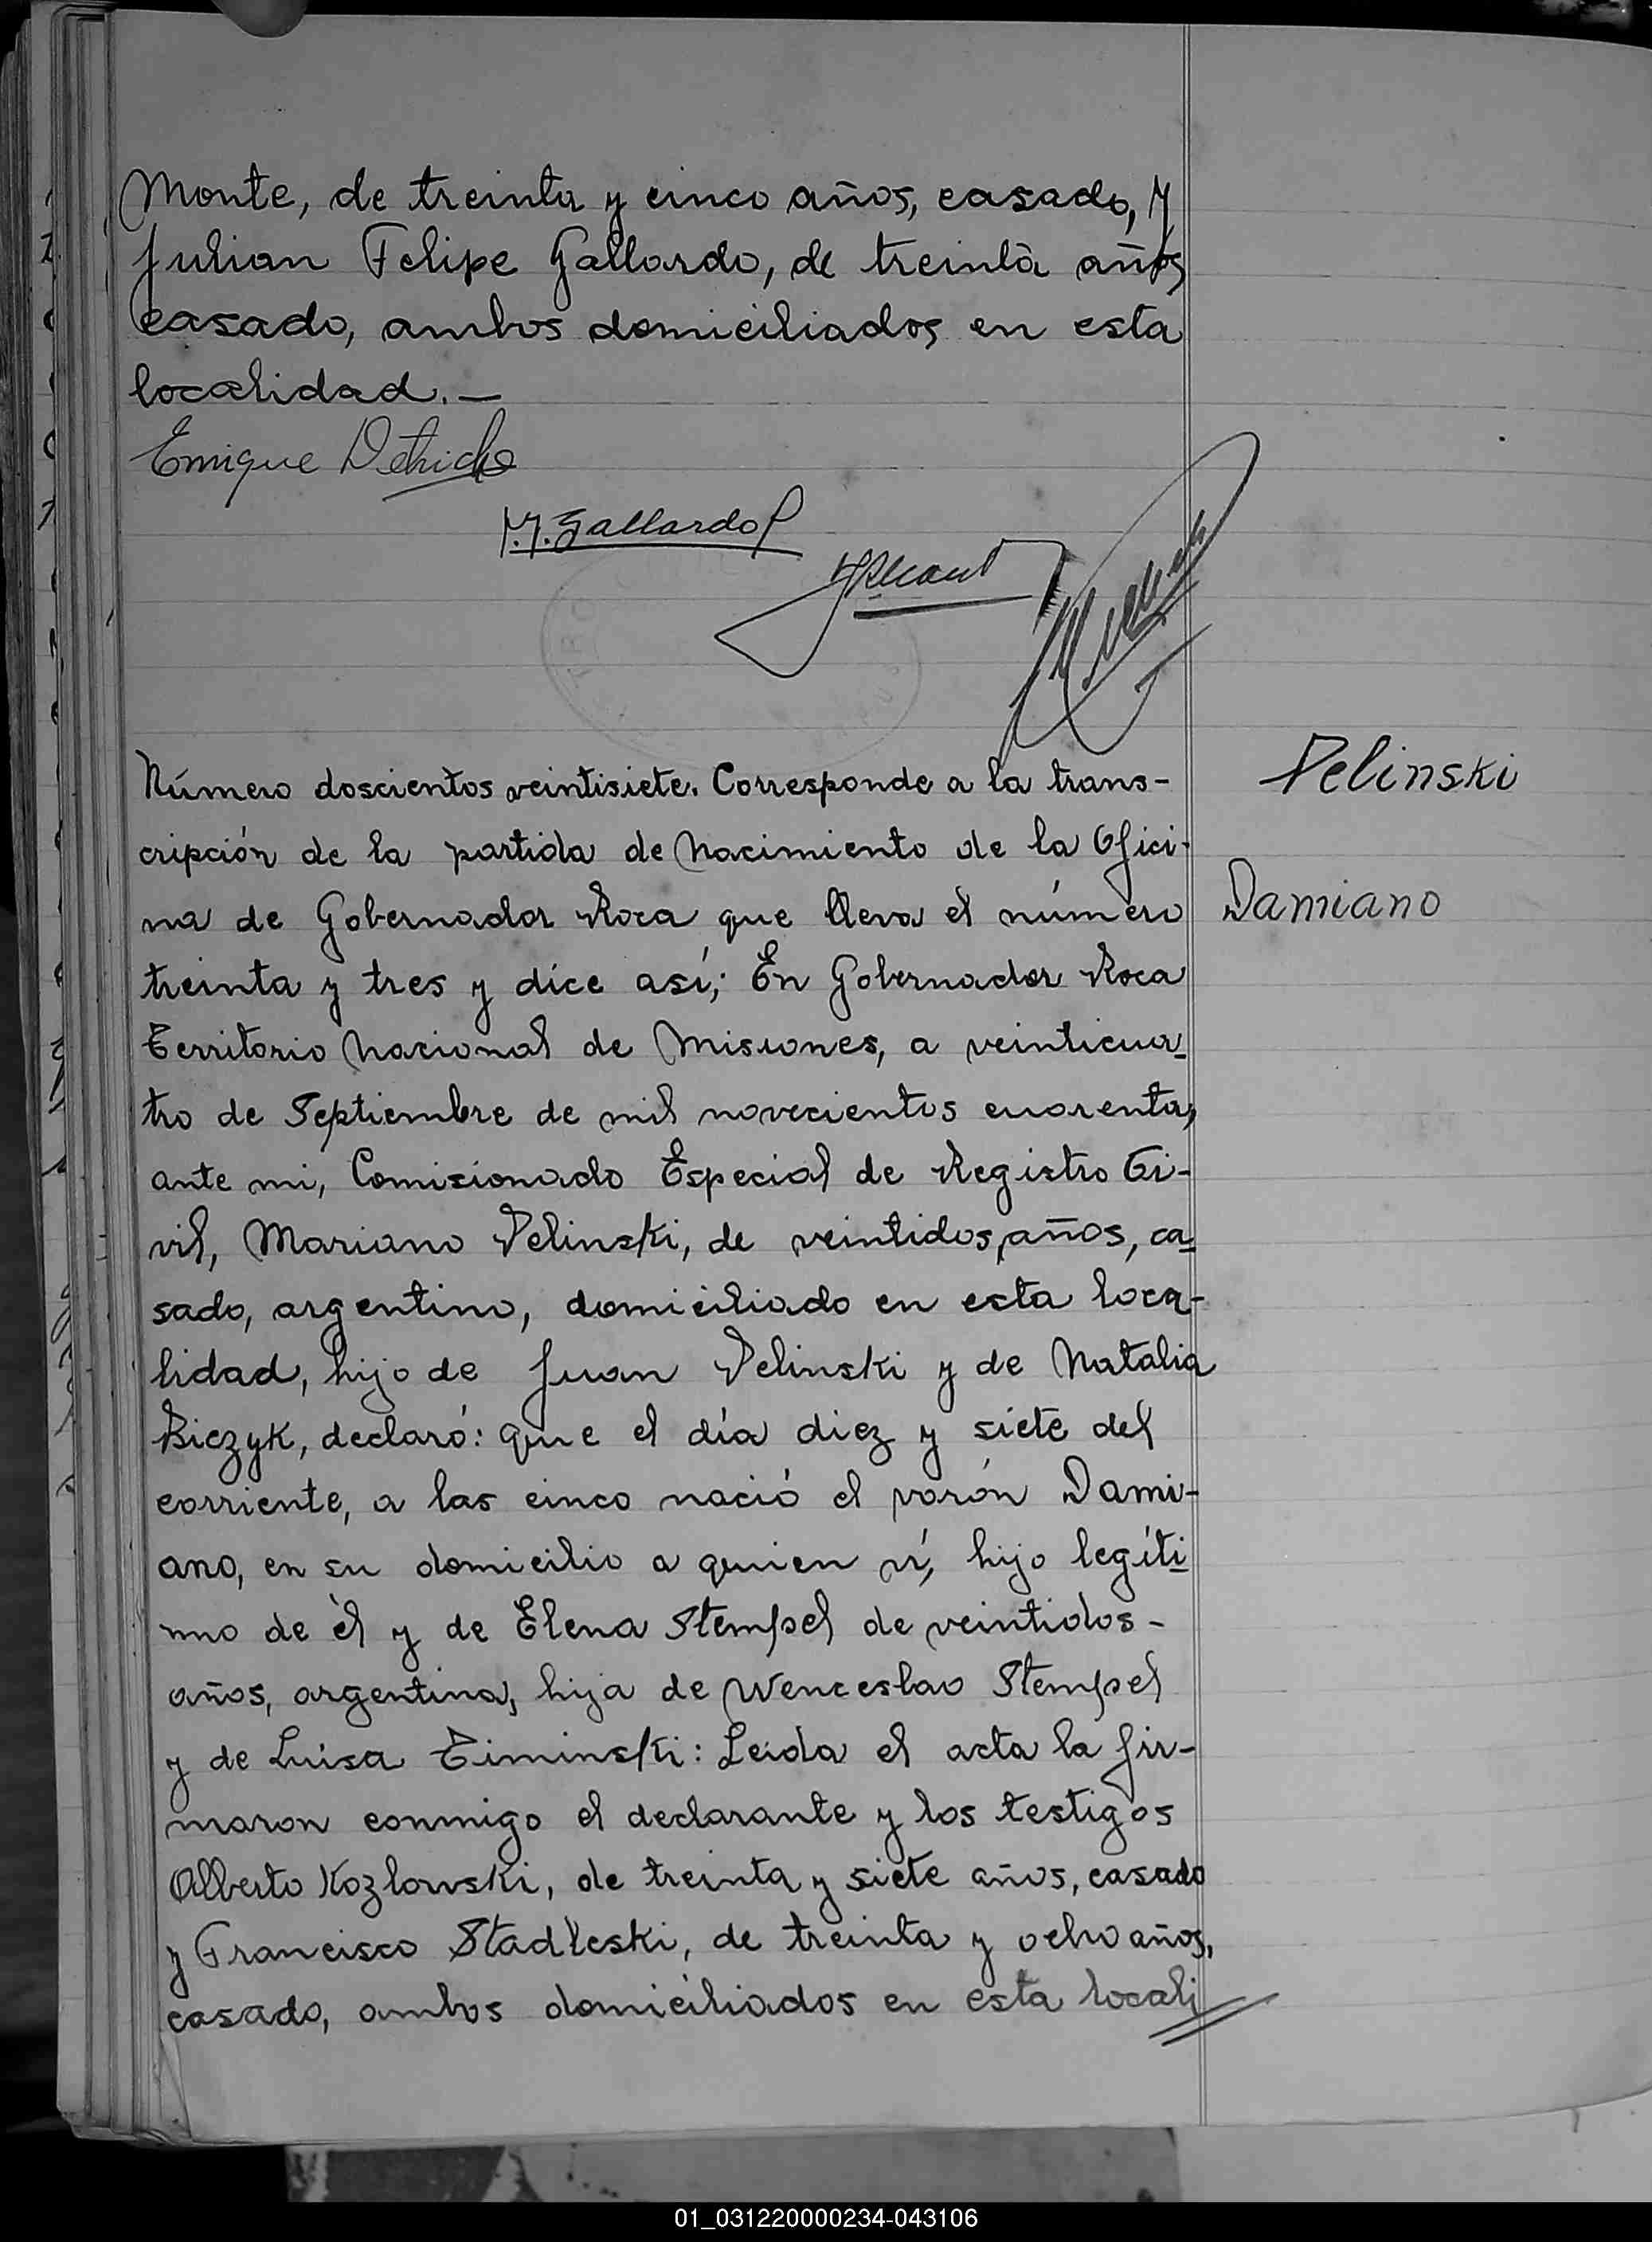 Monte, de treinta y cinco años, casado, y
Julian Felipe Gallardo, de treinta años
casado, ambos domiciliados en esta
localidad.—
Enrique
Gallardo
Número doscientos veintisiete. Corresponde a la trans-
cripción de la partida de Nacimiento de la Ofici-
na de Gobernador Roca que lleva el número
treinta y tres y dice así; En Gobernador Roca
Territorio Nacional de Misiones, a veinticua-
tro de Septiembre de mil novecientos cuarenta,
ante mi, Comisionado Especial de Registro Ci-
vil, Mariano Pelinski, de veintidos años, ca-
sado, argentino, domiciliado en esta loca-
lidad, hijo de Juan Pelinski y de Natalia
Biczyk, declaró: que el día diez y siete del
corriente, a las cinco nació el varón Dami-
ano, en su domicilio a quien ví, hijo legíti-
mo de èl y de Elena Stempel de veintidos-
años, argentina, hija de Wenceslao Stempel
y de Luisa Ziminski: Leída el acta la fir-
maron conmigo el declarante y los testigos
Alberto Kozlowski, de treinta y siete años, casado
y Francisco Stadleski, de treinta y ocho años,
casado, ambos domiciliados en esta locali
Pelinski
Damiano
01_031220000234-043106